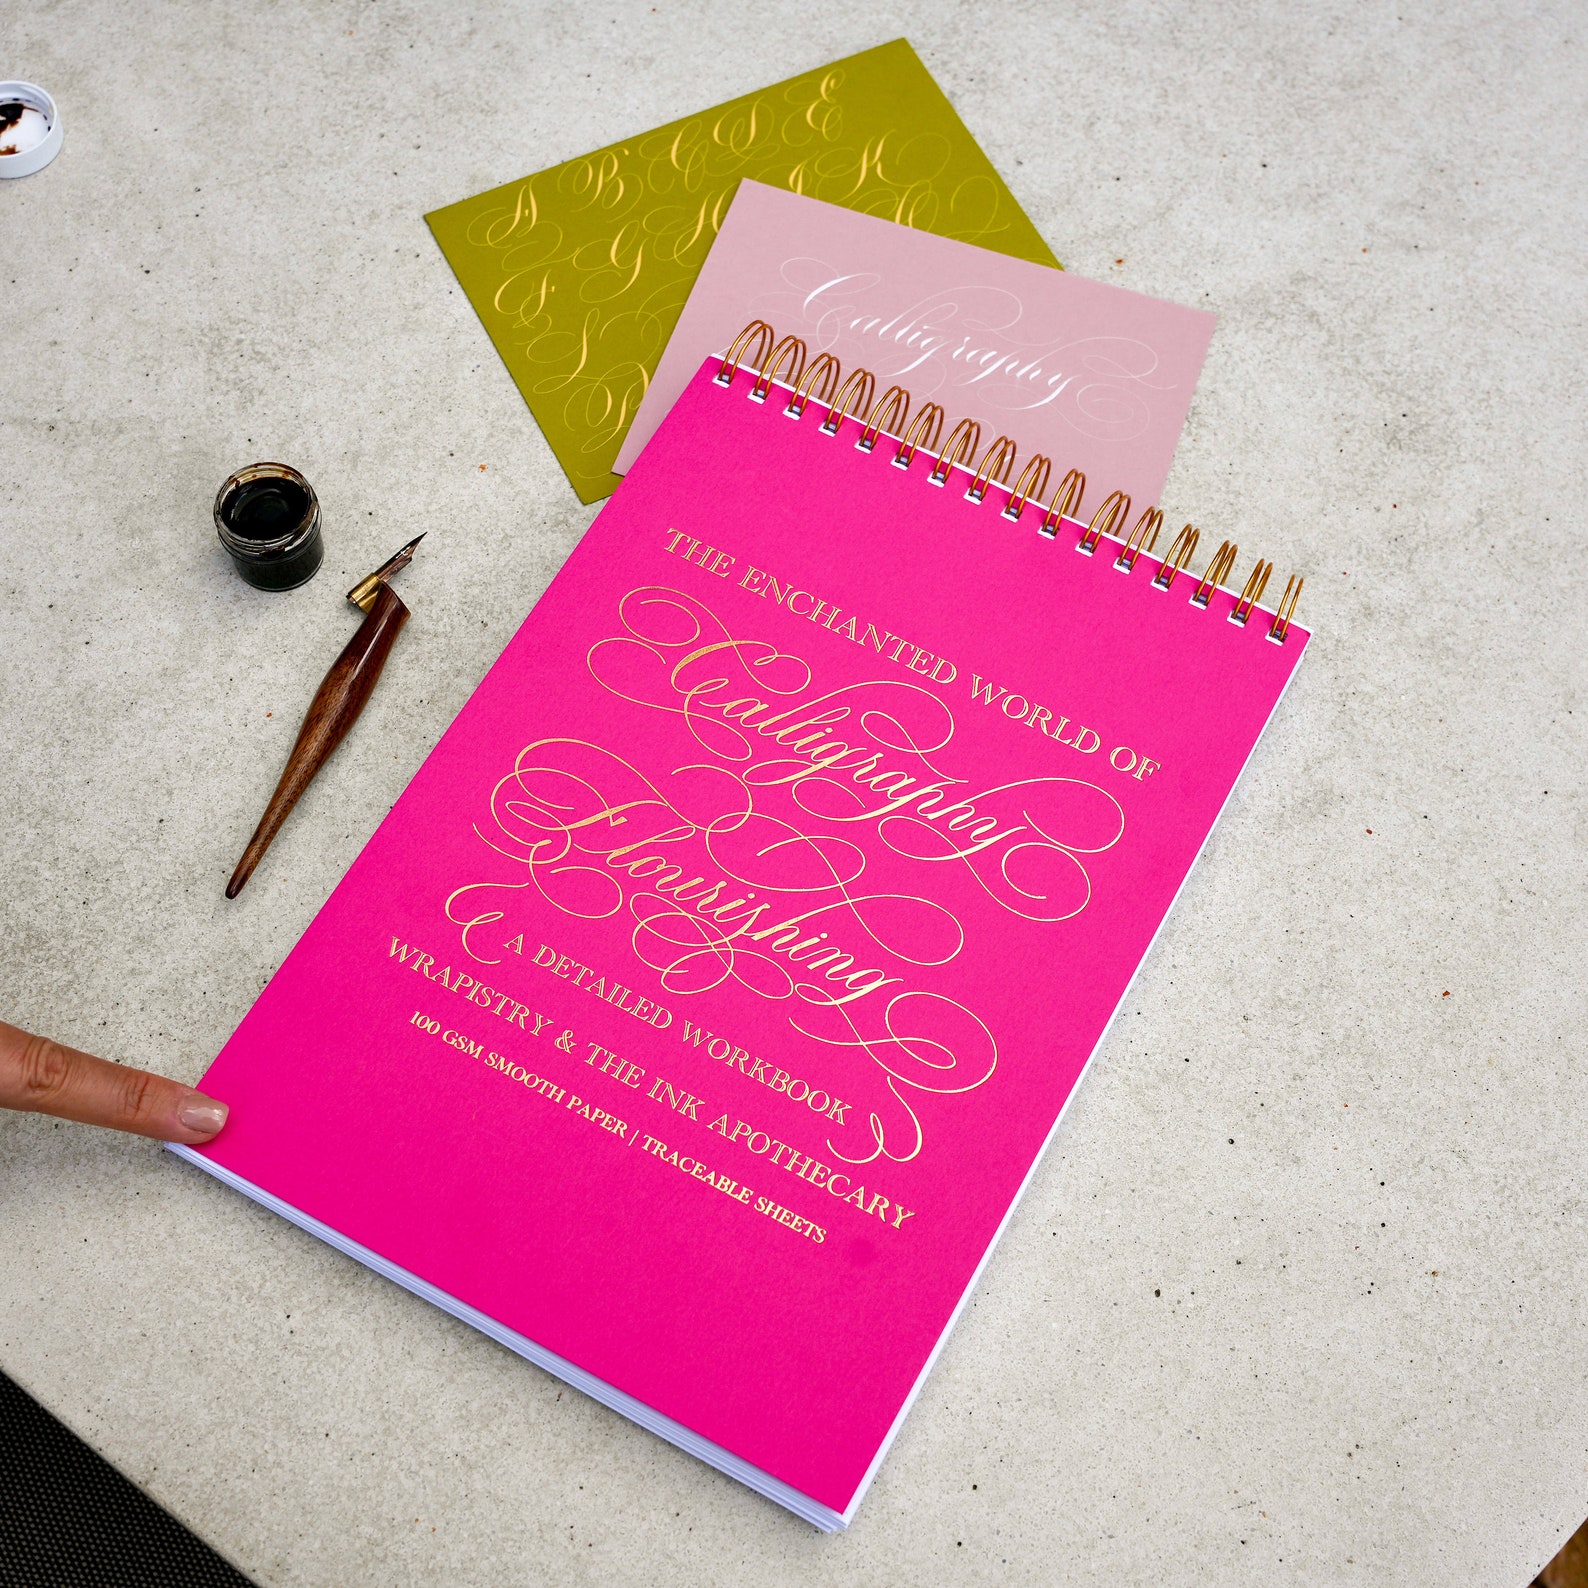 A B C D E
F G H I K
L
Calligraphy
THE ENCHANTED WORLD OF
Calligraphy
Flourishing
A DETAILED WORKBOOK
WRAPISTRY & THE INK APOTHECARY
100 GSM SMOOTH PAPER | TRACEABLE SHEETS